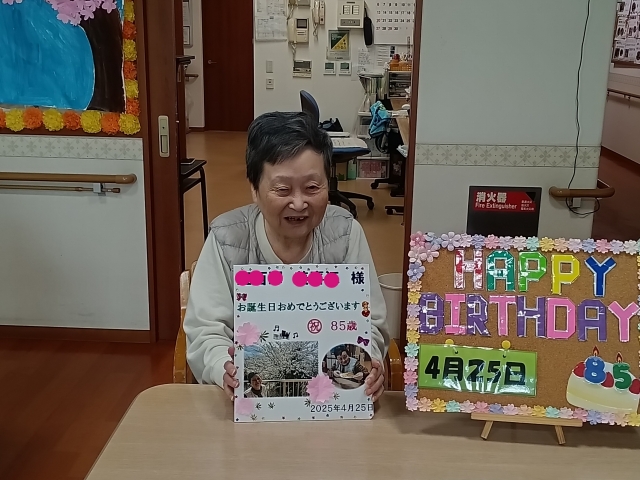 様
お誕生日おめでとうございます
祝 85歳
2025年4月25日
消火器
Fire Extinguisher
HAPPY
BIRTHDAY
4月25日
85